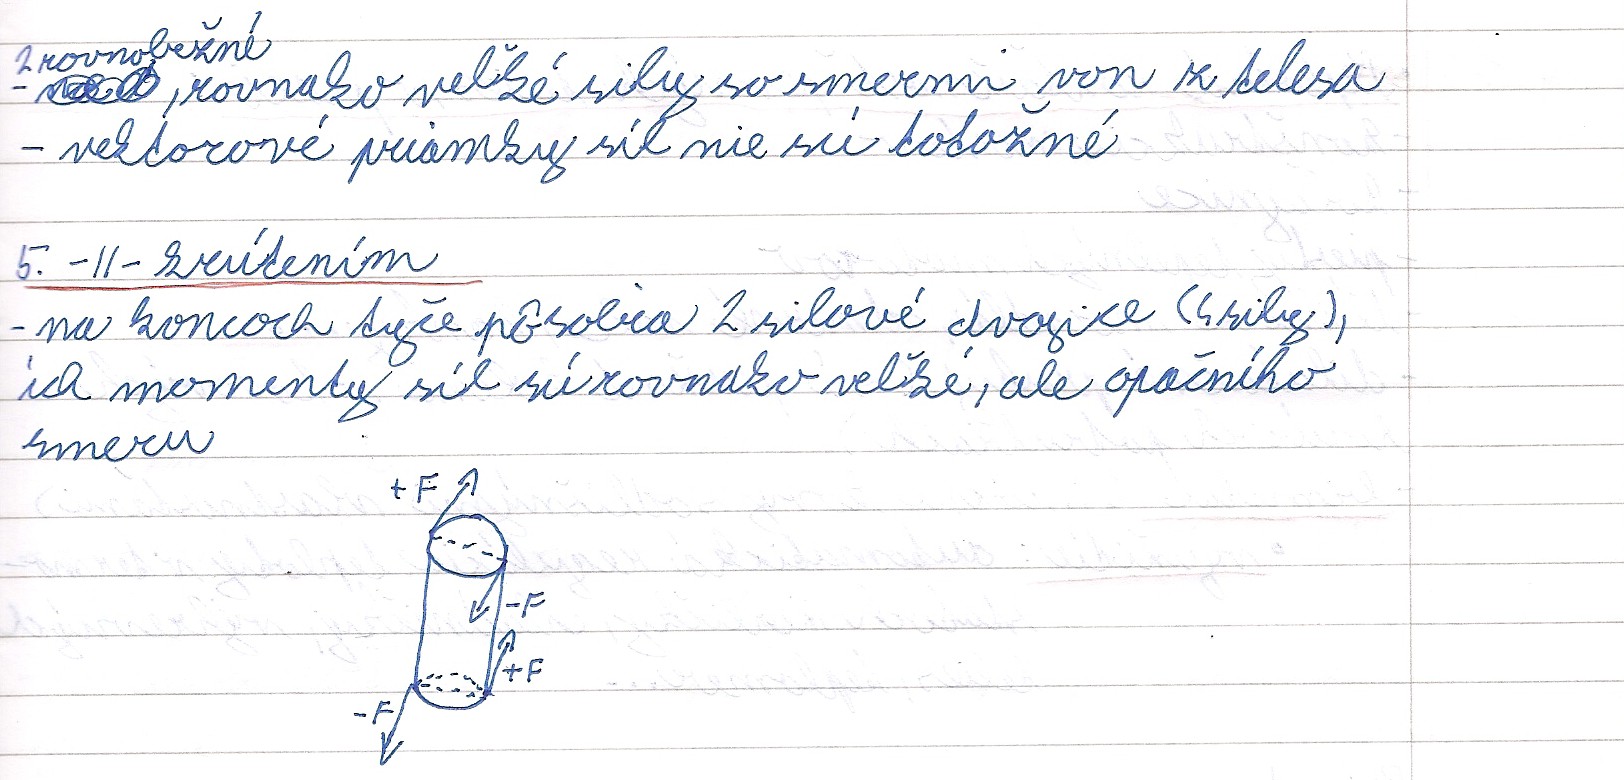 2 rovnobežné
- , rovnako veľké sily so smermi von z telesa
- vektorové priamky síl nie sú totožné
5. -||- krútením
- na koncoch tyče pôsobia 2 silové dvojice (4 sily),
ich momenty síl sú rovnako veľké, ale opačního
smeru
+F
-F
+F
-F